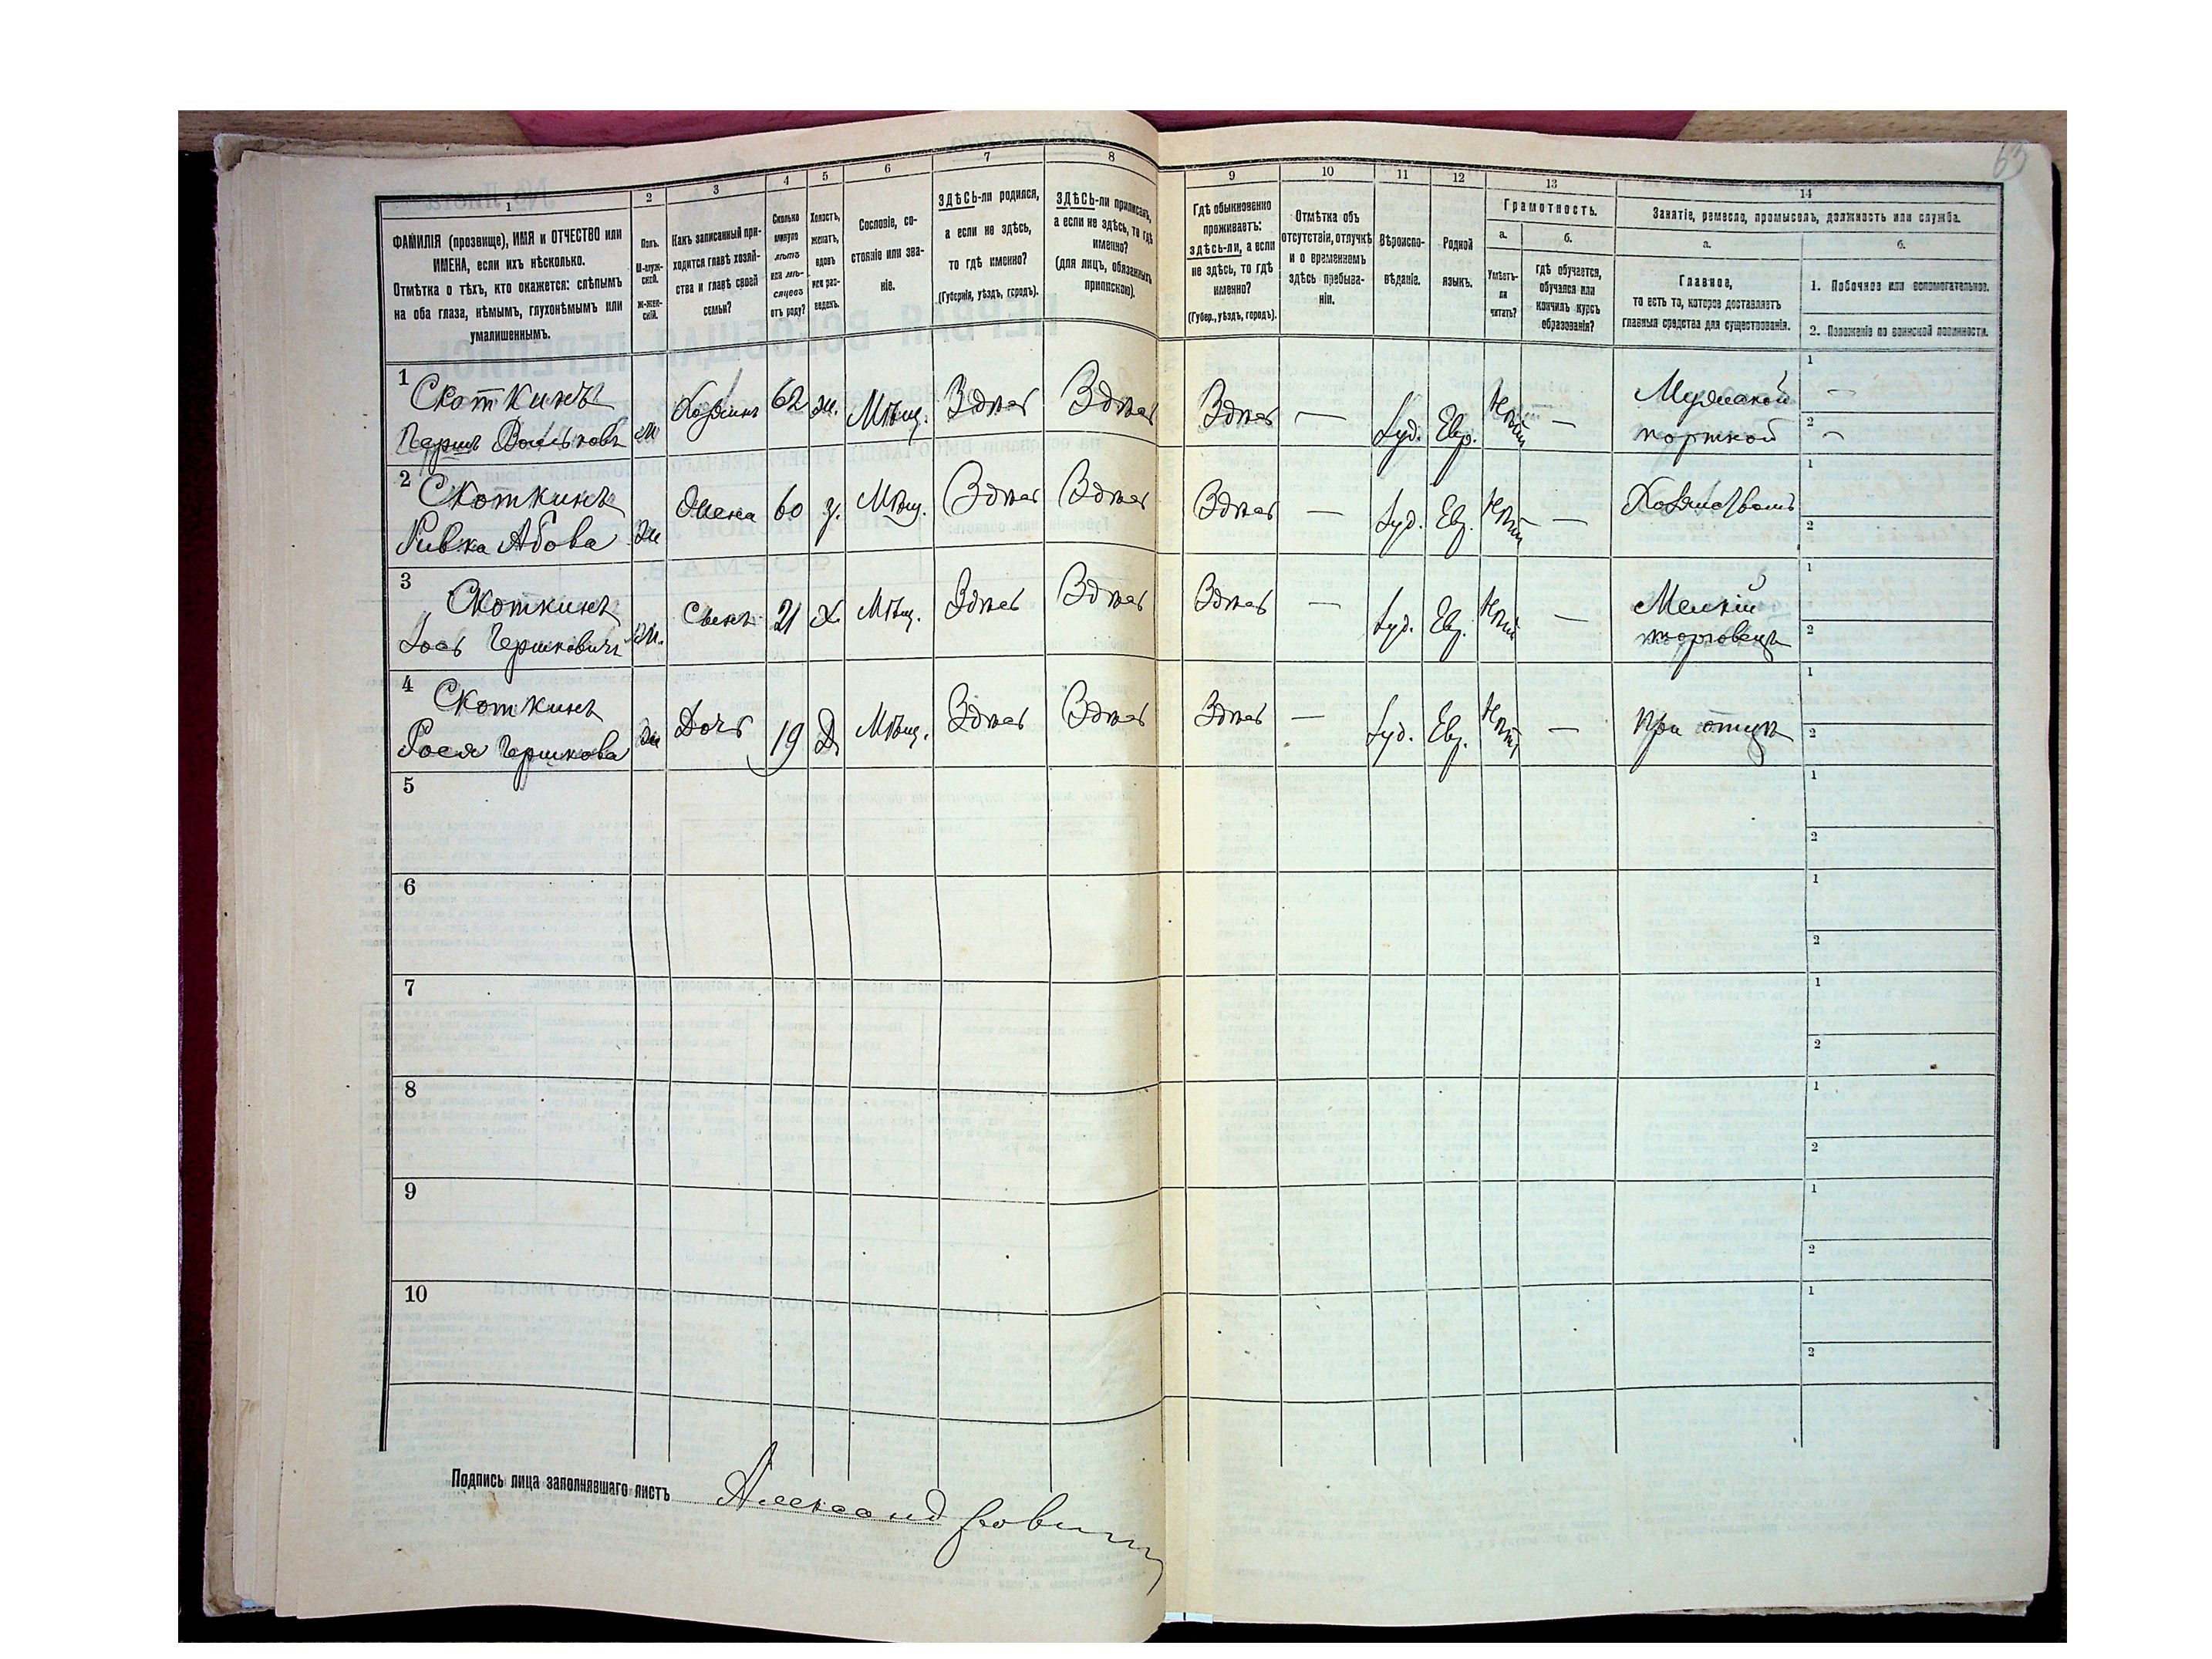 63
1
2
3
4
5
6
7
8
9
10
11
12
13
14
ФАМИЛІЯ (прозвище), ИМЯ и ОТЧЕСТВО или
ИМЕНА, если ихъ нѣсколько.
Отмѣтка о тѣхъ, кто окажется: слѣпымъ
на оба глаза, нѣмымъ, глухонѣмымъ или
умалишеннымъ.
Полъ.
М-муж-
ской.
Ж-жен-
скій.
Какъ записанный при-
ходится главѣ хозяй-
ства и главѣ своей
семьи?
Сколько
минуло
лѣтъ
или мѣ-
сяцевъ
отъ роду?
Холостъ,
женатъ,
вдовъ
или раз-
веденъ.
Сословіе, со-
стояніе или зва-
ніе.
ЗДѢСЬ-ли родился,
а если не здѣсь,
то гдѣ именно?
(Губернія, уѣздъ, городъ).
ЗДѢСЬ-ли приписанъ,
а если не здѣсь, то гдѣ
именно?
(для лицъ, обязанныхъ
припискою).
Гдѣ обыкновенно
проживаетъ:
здѣсь-ли, а если
не здѣсь, то гдѣ
именно?
(Губер., уѣздъ, городъ).
Отмѣтка объ
отсутствіи, отлучкѣ
и о временномъ
здѣсь пребыва-
ніи.
Вѣроиспо-
вѣданіе.
Родной
языкъ.
Грамотность.
а.
б.
Умѣетъ-
ли
читать?
гдѣ обучается,
обучался или
кончилъ курсъ
образованія?
Занятіе, ремесло, промыселъ, должность или служба.
а.
б.
Главное,
то есть то, которое доставляетъ
главныя средства для существованія.
1. Побочное или вспомогательное.
2. Положеніе по воинской повинности.
1 Скоткинъ
Гершъ м Хозяинъ 62 ж. Мѣщ. Здѣсь Здѣсь Здѣсь — Іуд. Евр. Нѣтъ —
портной
1 —
2 —
2 Скоткинъ
Ривка Абова ж Жена 60 з. Мѣщ. Здѣсь Здѣсь Здѣсь — Іуд. Евр. Нѣтъ —
1
2
3 Скоткинъ
Іось Гершковичъ м. Сынъ 21 Х. Мѣщ. Здѣсь Здѣсь Здѣсь — Іуд. Евр. Нѣтъ — Мелкій
торговецъ
1
2
4 Скоткинъ
Рося Гершкова ж Дочь 19 Д. Мѣщ. Здѣсь Здѣсь Здѣсь — Іуд. Евр. Нѣтъ — При отцѣ
1
2
5
1
2
6
1
2
7
1
2
8
1
2
9
1
2
10
1
2
Подпись лица заполнявшаго листъ Александрович